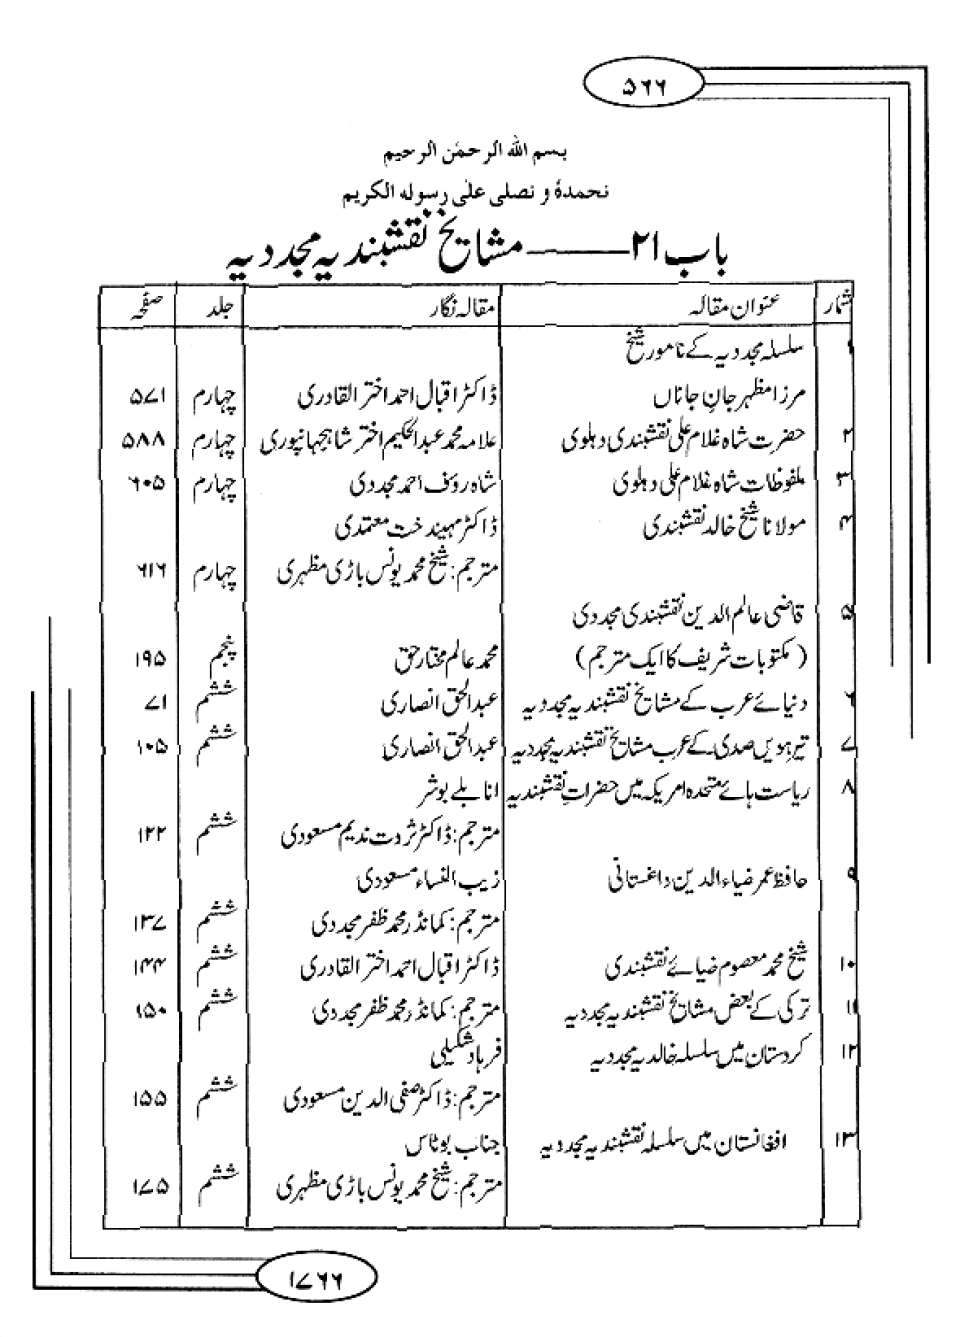 ۵۶۶
بسم اللہ الرحمٰن الرحیم
نحمدہٗ و نصلی علیٰ رسولہ الکریم
باب ۲۱ ——— مشایخ نقشبندیہ مجددیہ
شمار عنوان مقالہ مقالہ نگار جلد صفحہ
۱ سلسلہ مجددیہ کے نامور شیخ
مرزا مظہر جانِ جاناں ڈاکٹر اقبال احمد اختر القادری چہارم ۵۷۱
۲ حضرت شاہ غلام علی نقشبندی دہلوی علامہ محمد عبدالحکیم اختر شاہجہانپوری چہارم ۵۸۸
۳ ملفوظات شاہ غلام علی دہلوی شاہ رؤف احمد مجددی چہارم ۶۰۵
۴ مولانا شیخ خالد نقشبندی ڈاکٹر مہیندخت معتمدی
مترجم: شیخ محمد یونس باڑی مظہری چہارم ۶۱۶
۵ قاضی عالم الدین نقشبندی مجددی
(مکتوبات شریف کا ایک مترجم) محمد عالم مختار حق پنجم ۱۹۵
۶ دنیائے عرب کے مشایخ نقشبندیہ مجددیہ عبدالحق انصاری ششم ۷۱
۷ تیرہویں صدی کے عرب مشایخ نقشبندیہ مجددیہ عبدالحق انصاری ششم ۱۰۵
۸ ریاست ہائے متحدہ امریکہ میں حضراتِ نقشبندیہ انابلے بوشر
مترجم: ڈاکٹر ثروت ندیم مسعودی ششم ۱۲۲
۹ حافظ عمر ضیاء الدین داغستانی زیب النساء مسعودی
مترجم: کمانڈر محمد ظفر مجددی ششم ۱۳۷
۱۰ شیخ محمد معصوم ضیائے نقشبندی ڈاکٹر اقبال احمد اختر القادری ششم ۱۴۴
۱۱ ترکی کے بعض مشایخ نقشبندیہ مجددیہ مترجم: کمانڈر محمد ظفر مجددی ششم ۱۵۰
۱۲ کردستان میں سلسلہ خالدیہ مجددیہ فرہاد شکیلی
مترجم: ڈاکٹر صفی الدین مسعودی ششم ۱۵۵
۱۳ افغانستان میں سلسلہ نقشبندیہ مجددیہ جناب بوٹاس
مترجم: شیخ محمد یونس باڑی مظہری ششم ۱۷۵
۱۷۶۶